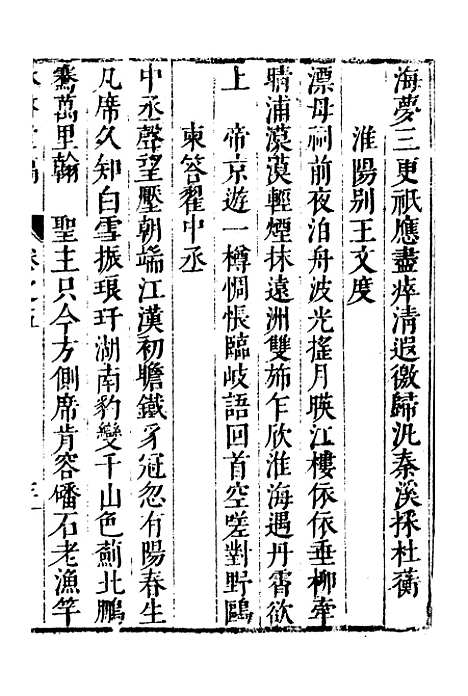 海夢三更祇應盡瘁清遐徼歸汎秦溪採杜蘅
淮陽别王文度
漂母祠前夜泊舟波光搖月暎江樓依依垂柳牽
晴浦漠漠輕煙抹遠洲雙斾乍欣淮海遇丹霄欲
上　帝京遊一樽惆悵臨岐語回首空嗟對野鷗
柬答翟中丞
中丞聲望壓朝端江漢初瞻鐵豸冠忽有陽春生
凡席久知白雪振琅玕湖南豹變千山色薊北鵬
騫萬里翰　聖主只今方側席肯容磻石老漁竿
卷之五